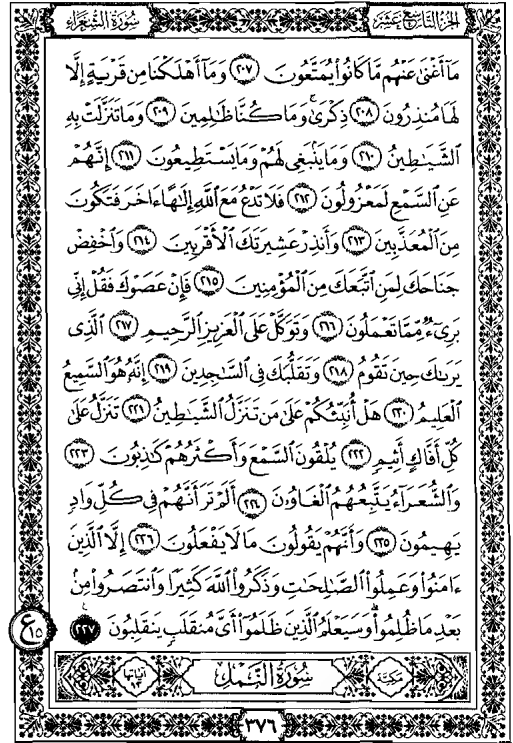 الجزء التاسع عشر
سورة الشعراء
مَآ أَغْنَىٰ عَنْهُم مَّا كَانُوا۟ يُمَتَّعُونَ ٢٠٧ وَمَآ أَهْلَكْنَا مِن قَرْيَةٍ إِلَّا
لَهَا مُنذِرُونَ ٢٠٨ ذِكْرَىٰ وَمَا كُنَّا ظَٰلِمِينَ ٢٠٩ وَمَا تَنَزَّلَتْ بِهِ
ٱلشَّيَٰطِينُ ٢١٠ وَمَا يَنۢبَغِى لَهُمْ وَمَا يَسْتَطِيعُونَ ٢١١ إِنَّهُمْ
عَنِ ٱلسَّمْعِ لَمَعْزُولُونَ ٢١٢ فَلَا تَدْعُ مَعَ ٱللَّهِ إِلَٰهًا ءَاخَرَ فَتَكُونَ
مِنَ ٱلْمُعَذَّبِينَ ٢١٣ وَأَنذِرْ عَشِيرَتَكَ ٱلْأَقْرَبِينَ ٢١٤ وَٱخْفِضْ
جَنَاحَكَ لِمَنِ ٱتَّبَعَكَ مِنَ ٱلْمُؤْمِنِينَ ٢١٥ فَإِنْ عَصَوْكَ فَقُلْ إِنِّى
بَرِىٓءٌ مِّمَّا تَعْمَلُونَ ٢١٦ وَتَوَكَّلْ عَلَى ٱلْعَزِيزِ ٱلرَّحِيمِ ٢١٧ ٱلَّذِى
يَرَىٰكَ حِينَ تَقُومُ ٢١٨ وَتَقَلُّبَكَ فِى ٱلسَّٰجِدِينَ ٢١٩ إِنَّهُۥ هُوَ ٱلسَّمِيعُ
ٱلْعَلِيمُ ٢٢٠ هَلْ أُنَبِّئُكُمْ عَلَىٰ مَن تَنَزَّلُ ٱلشَّيَٰطِينُ ٢٢١ تَنَزَّلُ عَلَىٰ
كُلِّ أَفَّاكٍ أَثِيمٍ ٢٢٢ يُلْقُونَ ٱلسَّمْعَ وَأَكْثَرُهُمْ كَٰذِبُونَ ٢٢٣
وَٱلشُّعَرَآءُ يَتَّبِعُهُمُ ٱلْغَاوُۥنَ ٢٢٤ أَلَمْ تَرَ أَنَّهُمْ فِى كُلِّ وَادٍ
يَهِيمُونَ ٢٢٥ وَأَنَّهُمْ يَقُولُونَ مَا لَا يَفْعَلُونَ ٢٢٦ إِلَّا ٱلَّذِينَ
ءَامَنُوا۟ وَعَمِلُوا۟ ٱلصَّٰلِحَٰتِ وَذَكَرُوا۟ ٱللَّهَ كَثِيرًا وَٱنتَصَرُوا۟ مِنۢ
بَعْدِ مَا ظُلِمُوا۟ وَسَيَعْلَمُ ٱلَّذِينَ ظَلَمُوٓا۟ أَىَّ مُنقَلَبٍ يَنقَلِبُونَ ٢٢٧
ع ١٥
مكية
سورة النمل
آياتها ٩٣
٣٧٦